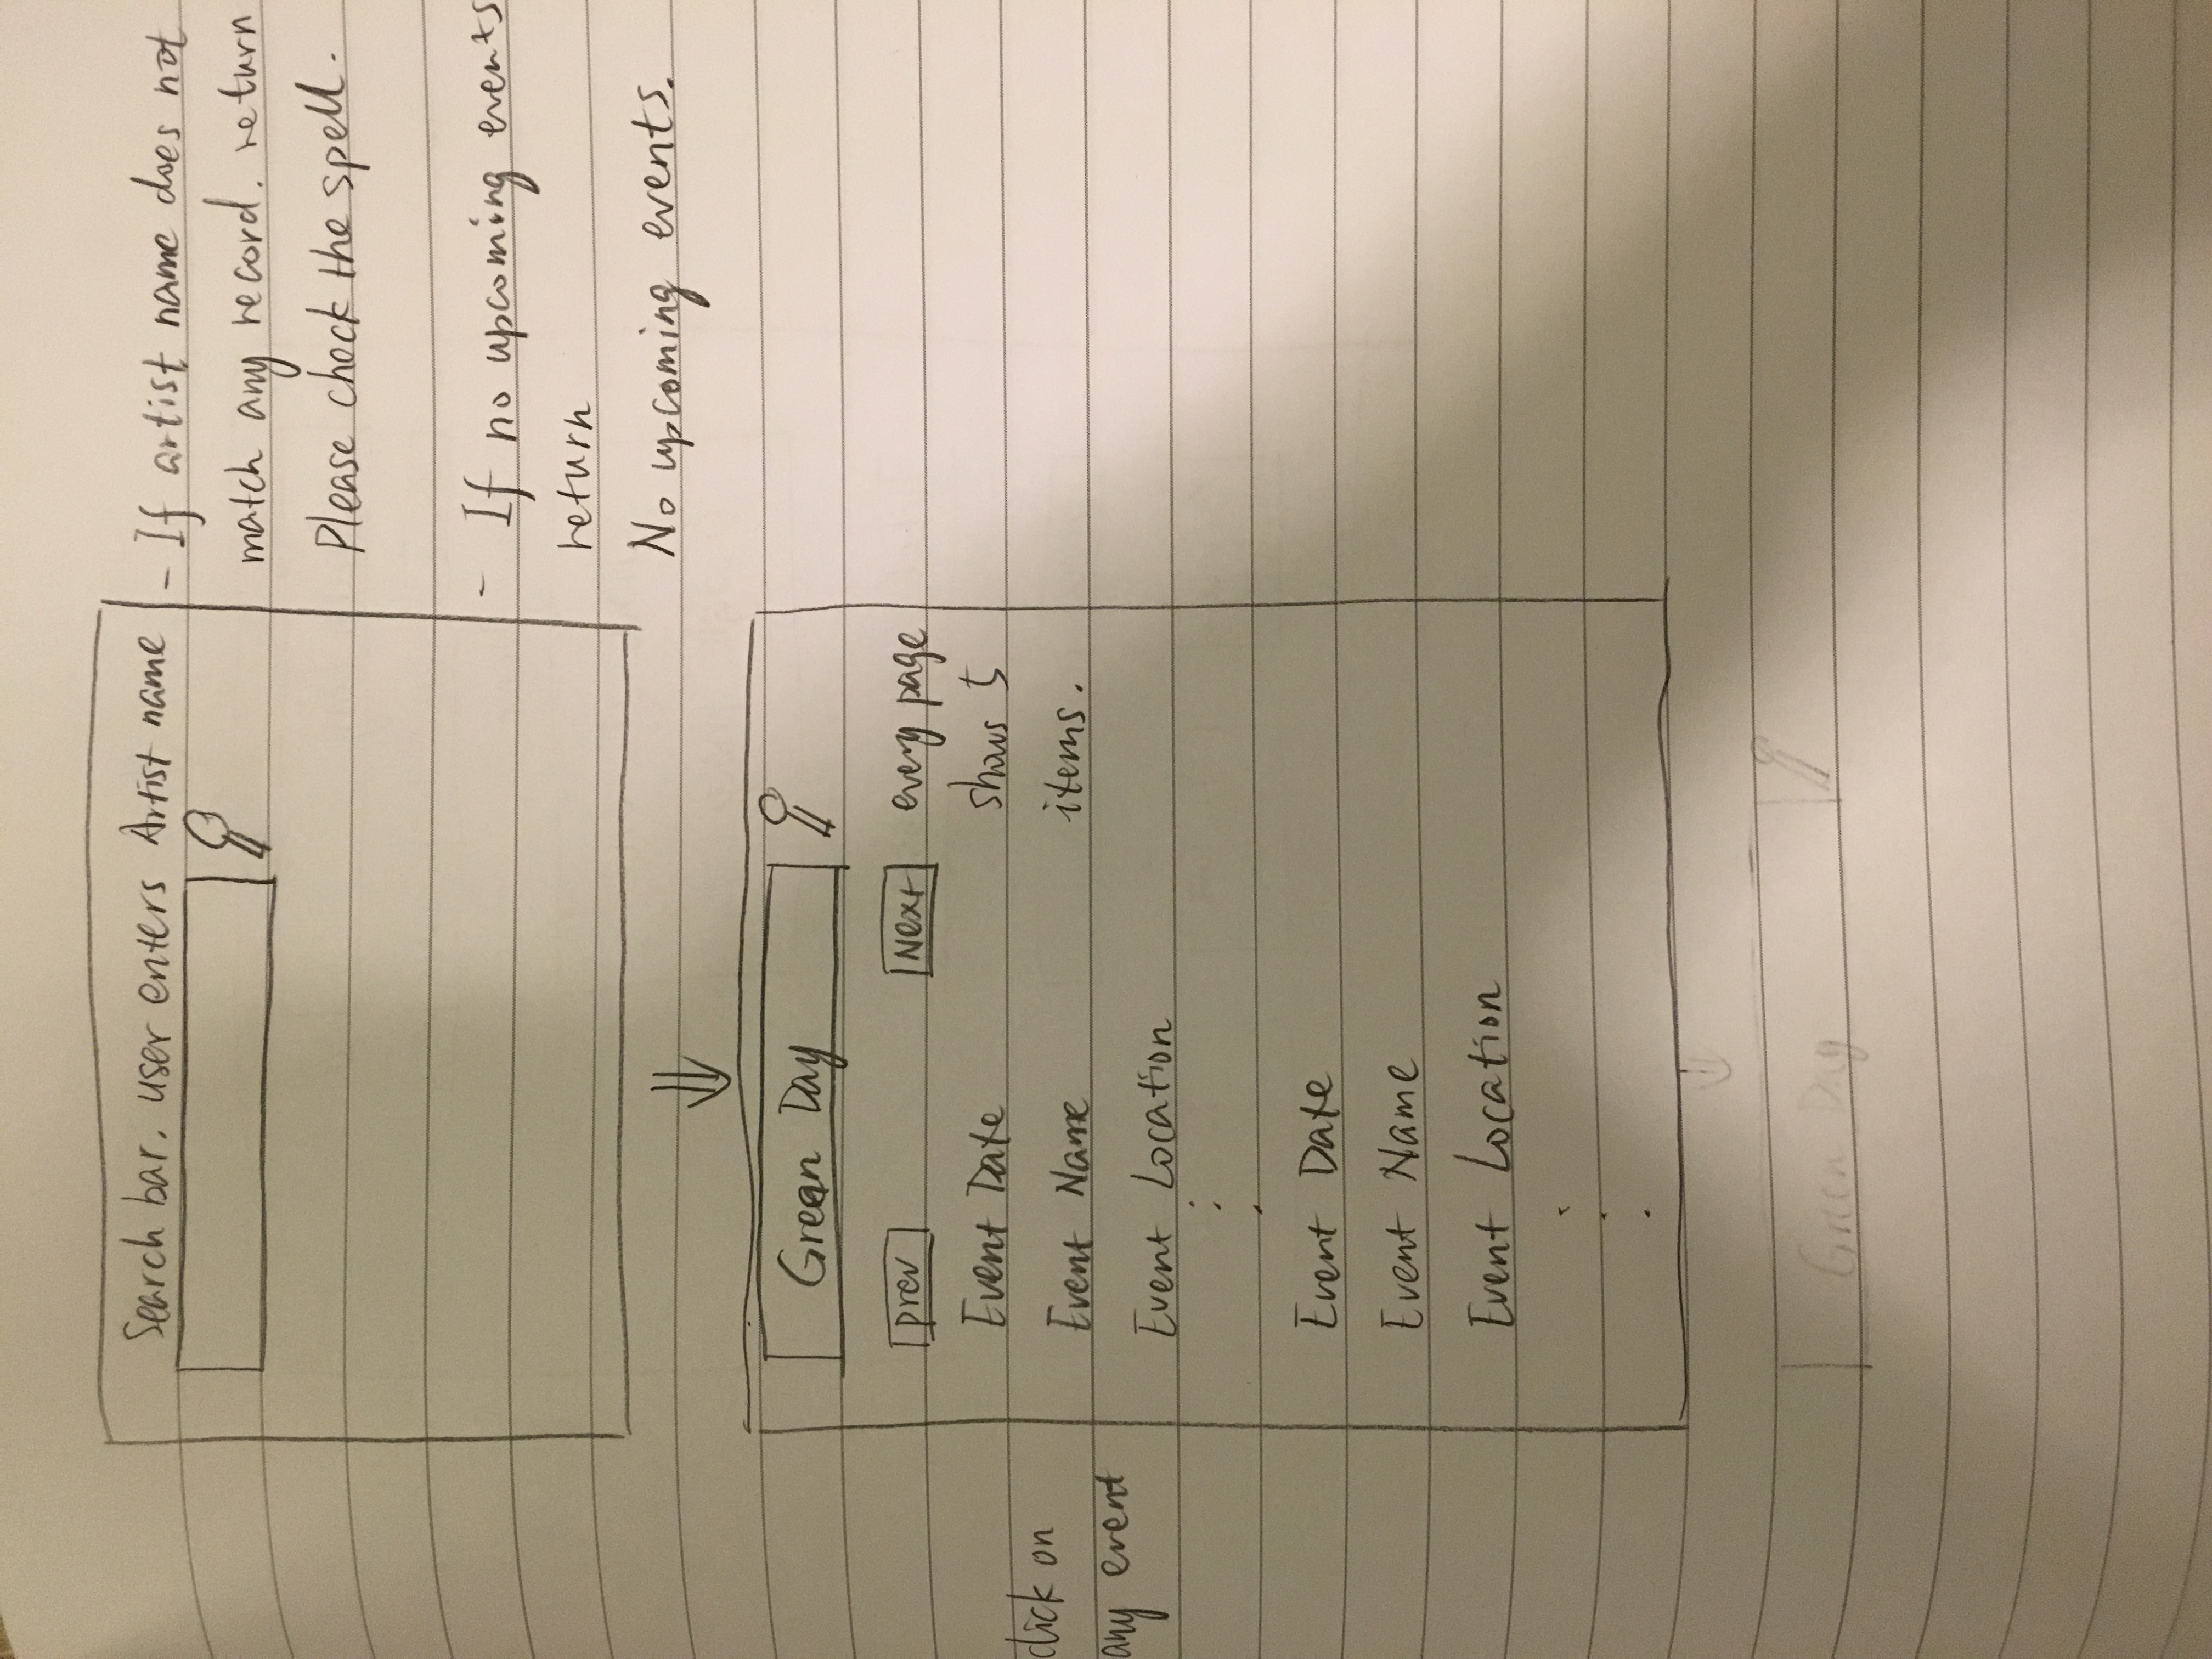 Search bar. user enters Artist name
- If artist name does not
match any record. return
Please check the spell.
- If no upcoming events
return
No upcoming events.
Green Day
prev
Next
every page
shows 5
items.
Event Date
Event Name
Event Location
click on
any event
Event Date
Event Name
Event Location
Green Day